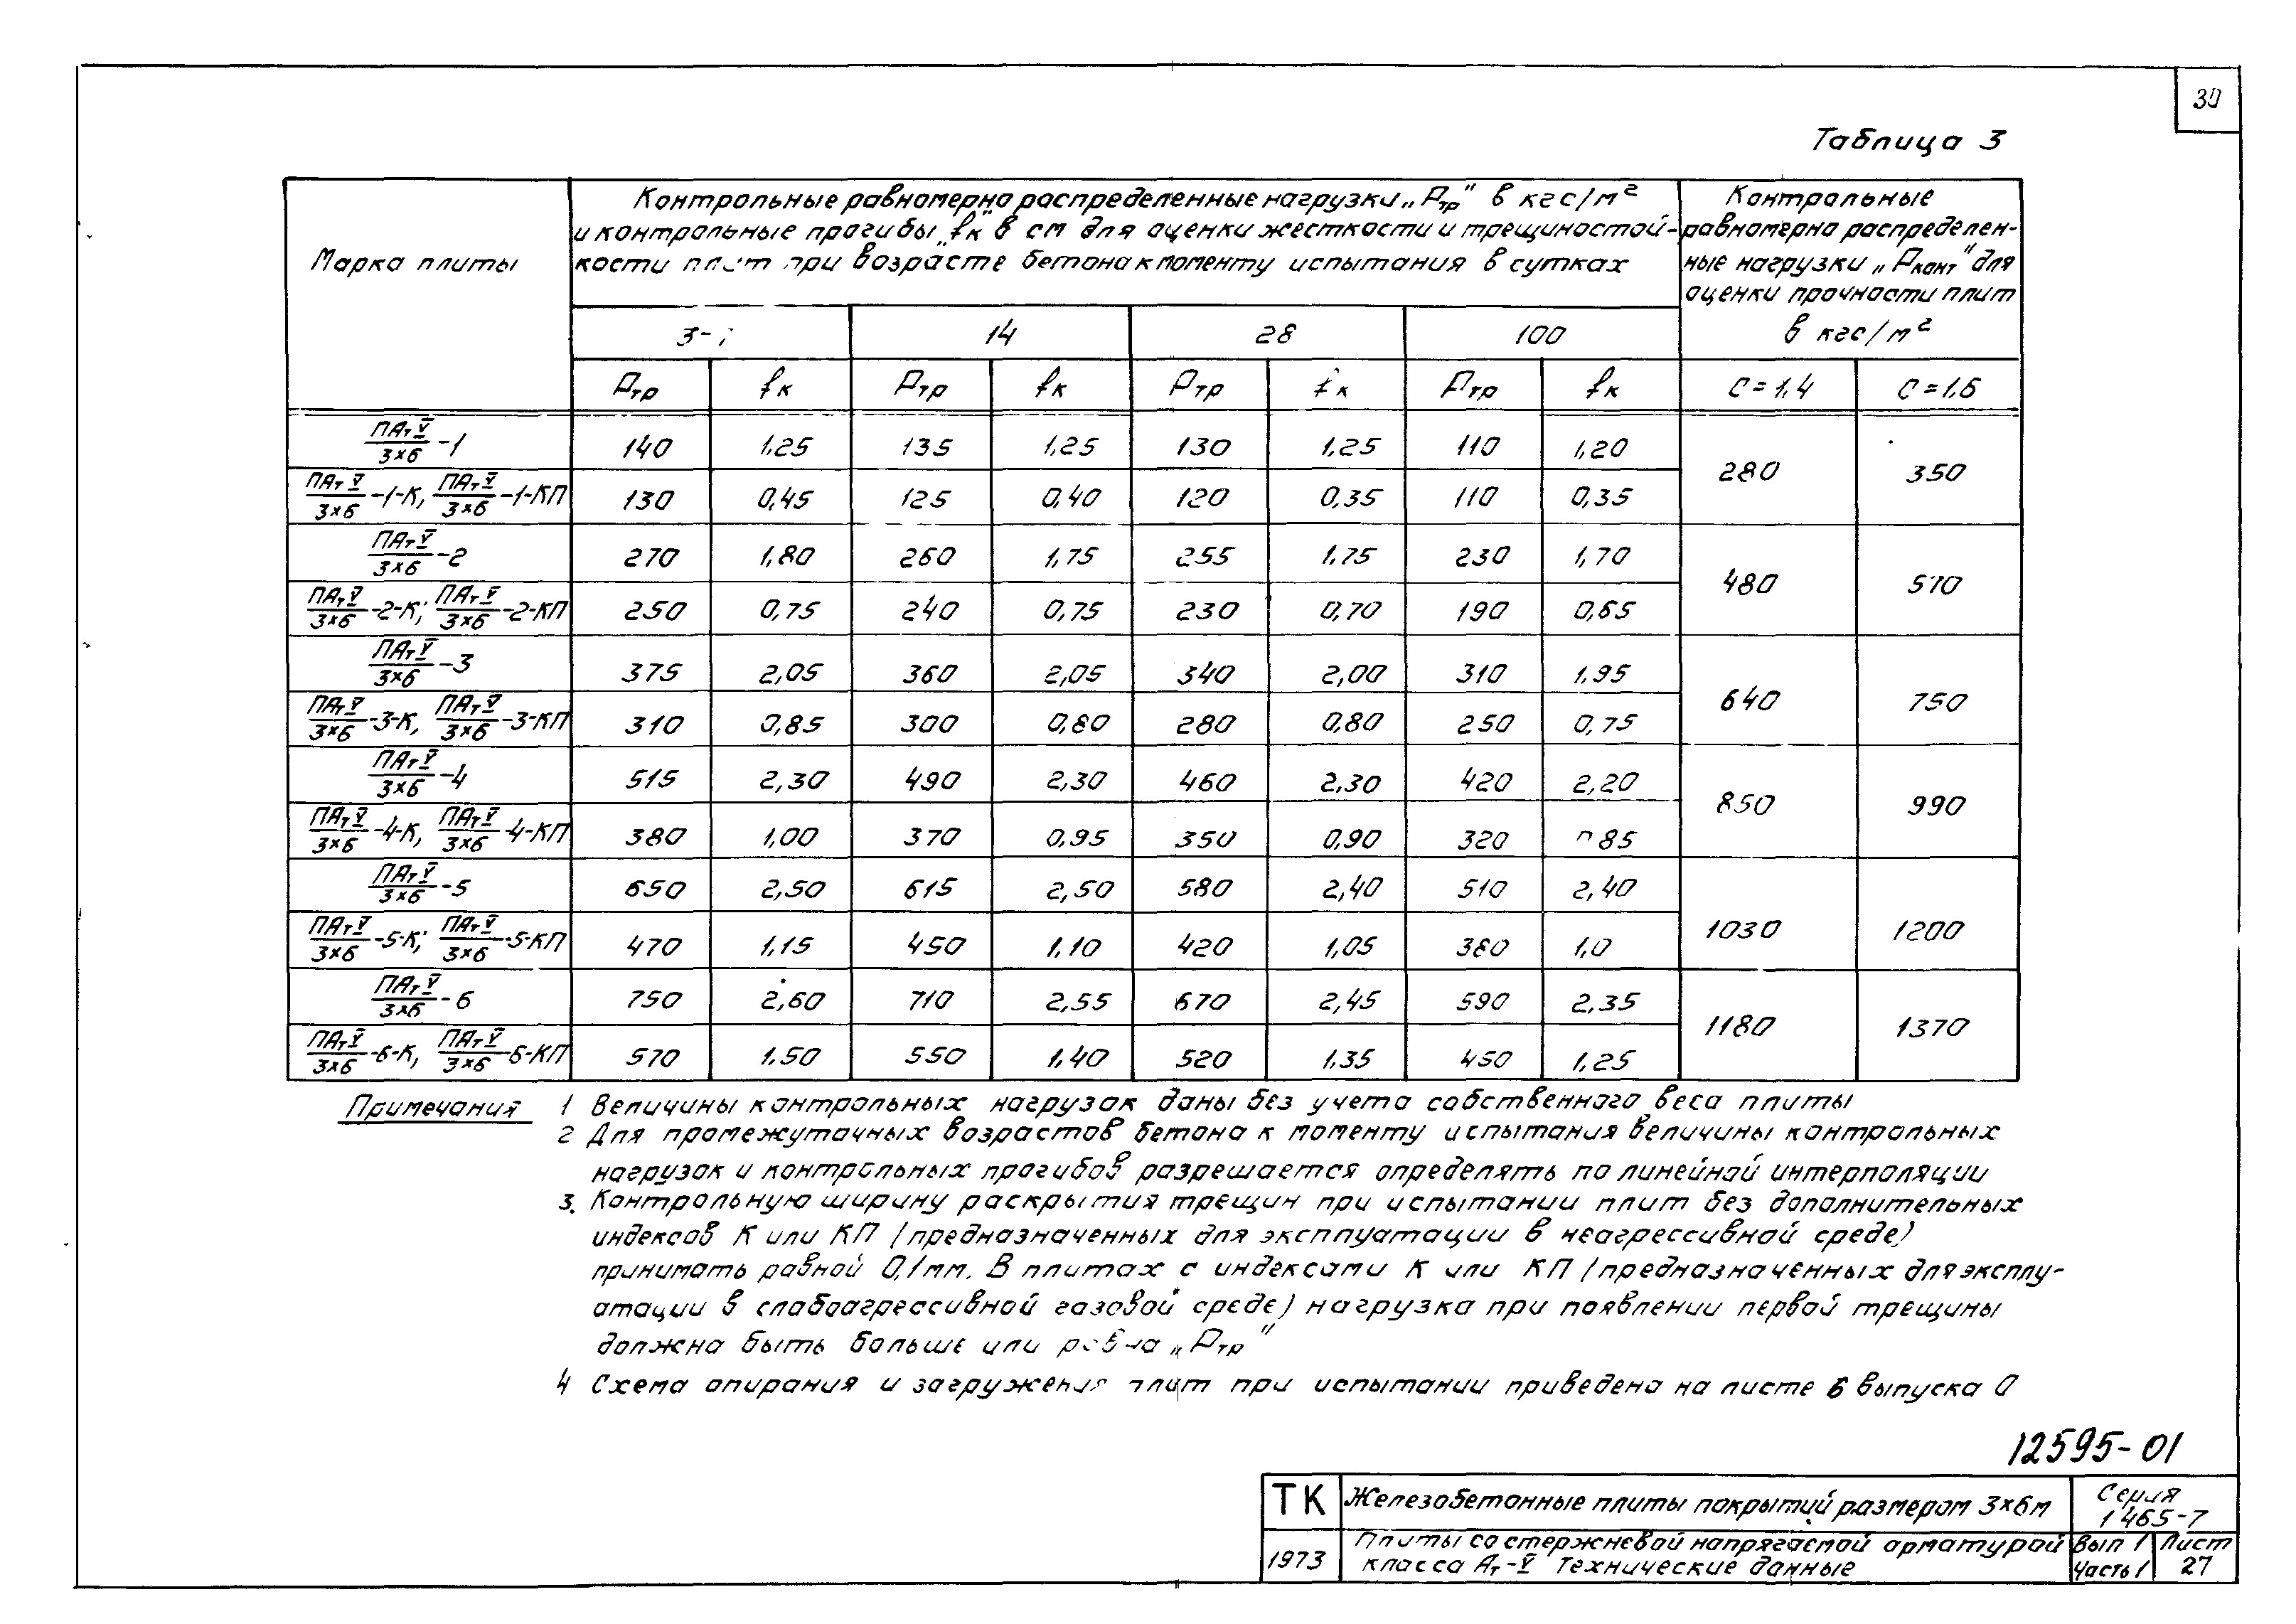 30
Таблица 3
Марка плиты
Контрольные равномерно распределенные нагрузки „Ртр" в кгс/м²
и контрольные прогибы „fк" в см для оценки жесткости и трещиностой-
кости плит при возрасте бетона к моменту испытания в сутках
Контрольные
равномерно распределен-
ные нагрузки „Рконт" для
оценки прочности плит
в кгс/м²
14 28 100
Ртр fк Ртр fк Ртр fк Ртр fк С=1,4 С=1,6
ПАтV/3×6-1 140 1,25 135 1,25 130 1,25 110 1,20 280 350
ПАтV/3×6-1-К, ПАтV/3×6-1-КП 130 0,45 125 0,40 120 0,35 110 0,35
ПАтV/3×6-2 270 1,80 260 1,75 255 1,75 230 1,70 480 570
ПАтV/3×6-2-К; ПАтV/3×6-2-КП 250 0,75 240 0,75 230 0,70 190 0,65
ПАтV/3×6-3 375 2,05 360 2,05 340 2,00 310 1,95 640 750
ПАтV/3×6-3-К, ПАтV/3×6-3-КП 310 0,85 300 0,80 280 0,80 250 0,75
ПАтV/3×6-4 515 2,30 490 2,30 460 2,30 420 2,20 850 990
ПАтV/3×6-4-К, ПАтV/3×6-4-КП 380 1,00 370 0,95 350 0,90 320 85
ПАтV/3×6-5 650 2,50 615 2,50 580 2,40 510 2,40 1030 1200
ПАтV/3×6-5-К; ПАтV/3×6-5-КП 470 1,15 450 1,10 420 1,05 1,0
ПАтV/3×6-6 750 2,60 710 2,55 670 2,45 590 2,35 1180 1370
ПАтV/3×6-6-К, ПАтV/3×6-6-КП 570 1,50 550 1,40 520 1,35 450 1,25
Примечания 1 Величины контрольных нагрузок даны без учета собственного веса плиты
2 Для промежуточных возрастов бетона к моменту испытания величины контрольных
нагрузок и контрольных прогибов разрешается определять по линейной интерполяции
3. Контрольную ширину раскрытия трещин при испытании плит без дополнительных
индексов К или КП (предназначенных для эксплуатации в неагрессивной среде)
принимать равной 0,1мм. В плитах с индексами К или КП (предназначенных для эксплу-
атации в слабоагрессивной газовой среде) нагрузка при появлении первой трещины
должна быть больше или равна „Ртр"
4 Схема опирания и загружения плит при испытании приведена на листе 6 выпуска 0
12595-01
ТК Железобетонные плиты покрытий размером 3×6м Серия
1 465-7
1973 Плиты со стержневой напрягаемой арматурой
класса Ат-V Технические данные
Вып 1 Лист
Часть 1 27